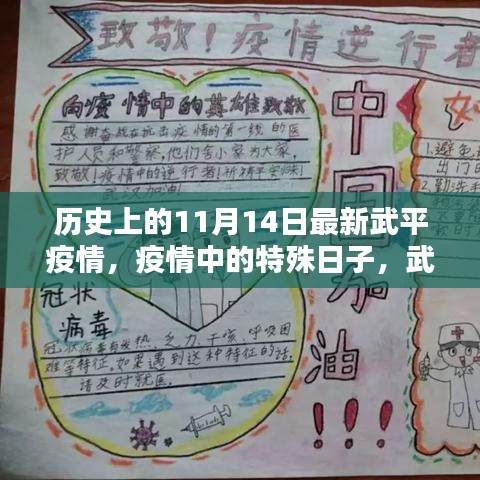 致敬!疫情逆行者
向疫情中的英雄致敬
感谢奋战在抗击疫情的第一线的医
护人员和警察,他们舍小家为大家,
致敬!疫情中的逆行者!祈祷平安归来!
武汉加油!
历史上的11月14日最新武平
疫情,疫情中的特殊日子,武
冠状
病毒
冠状病毒有发热、乏力、干咳、呼吸困
难等特征,如果遇到这种特征的话,
请及时就医。
中国加油!!!
1.避免
出门
2.勤洗